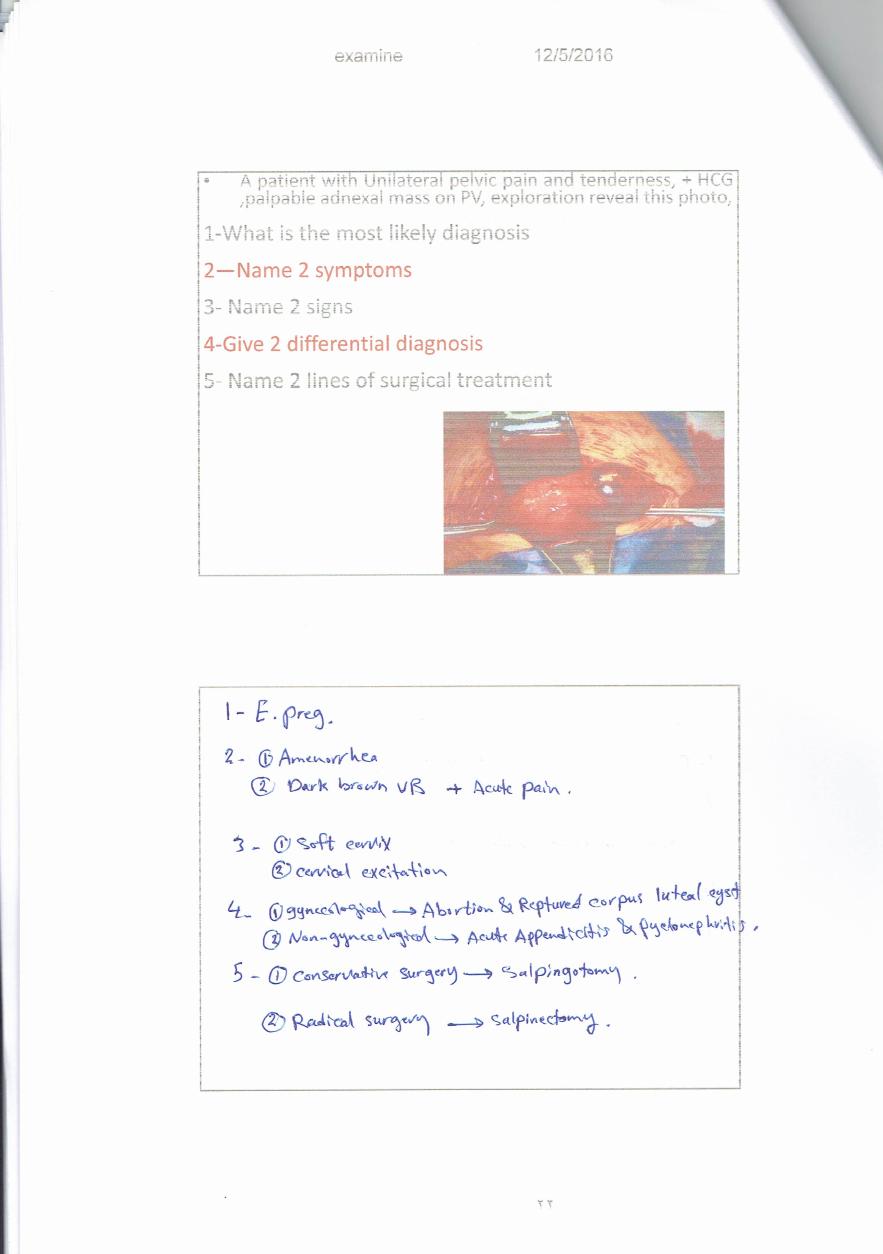 examine 12/5/2016
• A patient with Unilateral pelvic pain and tenderness, + HCG
,palpable adnexal mass on PV, exploration reveal this photo,
1-What is the most likely diagnosis
2—Name 2 symptoms
3- Name 2 signs
4-Give 2 differential diagnosis
5- Name 2 lines of surgical treatment
1- E. preg.
2- ① Amenorrhea
② Dark brown VB + Acute pain.
3- ① Soft cervix
② cervical excitation
4- ① gynecological → Abortion & Reptured corpus luteal cyst
② Non-gynecological → Acute Appendicitis & pyelonephritis.
5- ① Conservative surgery → Salpingotomy.
② Radical surgery → Salpinectomy.
٢٢